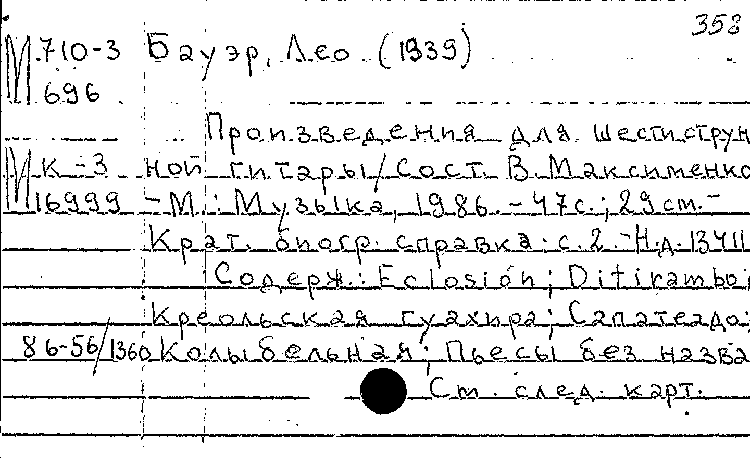 358
М 710-3 Бауэр, Лео. (1939)
696
Произведения для шестиструн
М К-3 ной гитары/Сост. В. Максименко
16999 - М.: Музыка, 1986. - 47с.; 29 см. -
Крат. биогр. справка: с. 2. - Н.Д. 13411
Содерж.: Eclosión; Ditirambo;
Креольская гуахира; Сапатеадо;
86-56/1360 Колыбельная; Пьесы без назва
См. след. карт.